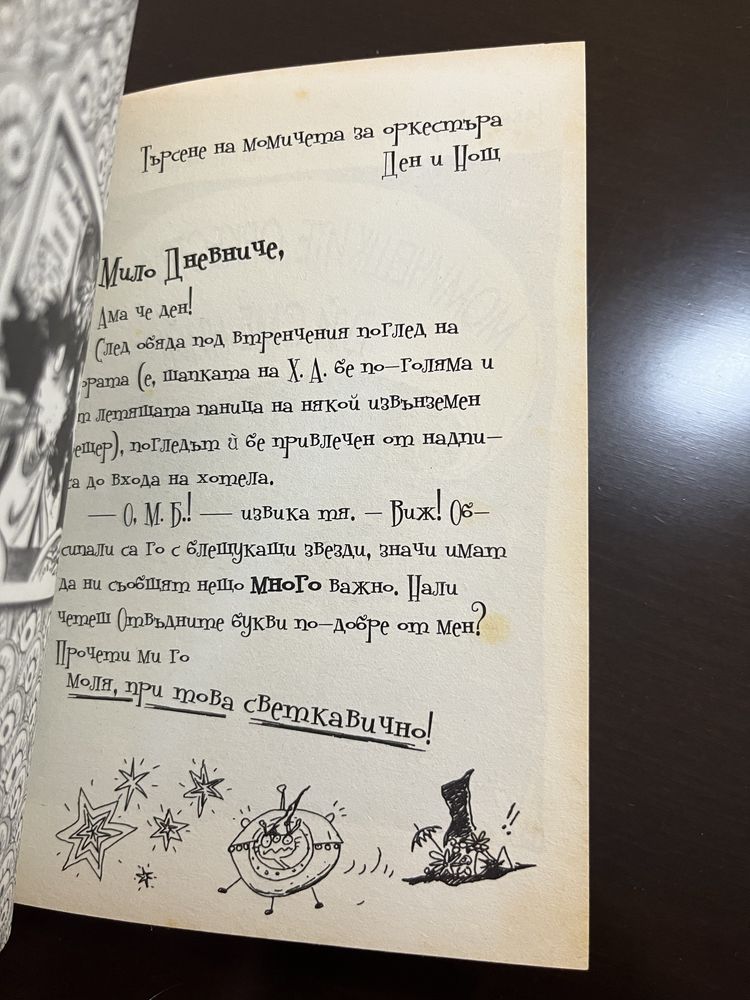 Търсене на момичета за оркестъра
Ден и Нощ
Мило Дневниче,
Ама че ден!
След обяда под втренчения поглед на
рата (е, шапката на Х. Д. бе по-голяма и
т летящата паница на някой извънземен
ещер), погледът ѝ бе привлечен от надпи-
са до входа на хотела.
— О, М. Б.! — извика тя. — Виж! Об-
сипали са го с блещукащи звезди, значи имат
да ни съобщят нещо много важно. Нали
четеш Отвъдните букви по-добре от мен?
Прочети ми го
моля, при това светкавично!
!!